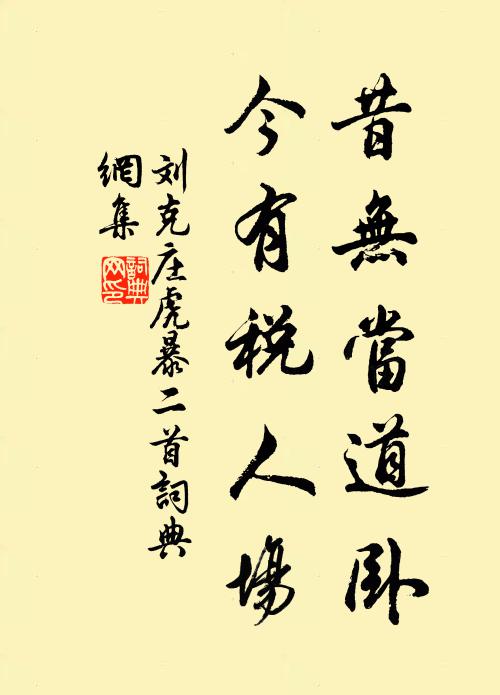 昔無當道卧
今有税人場
刘克庄虎暴二首詞典
網集
詞典网印